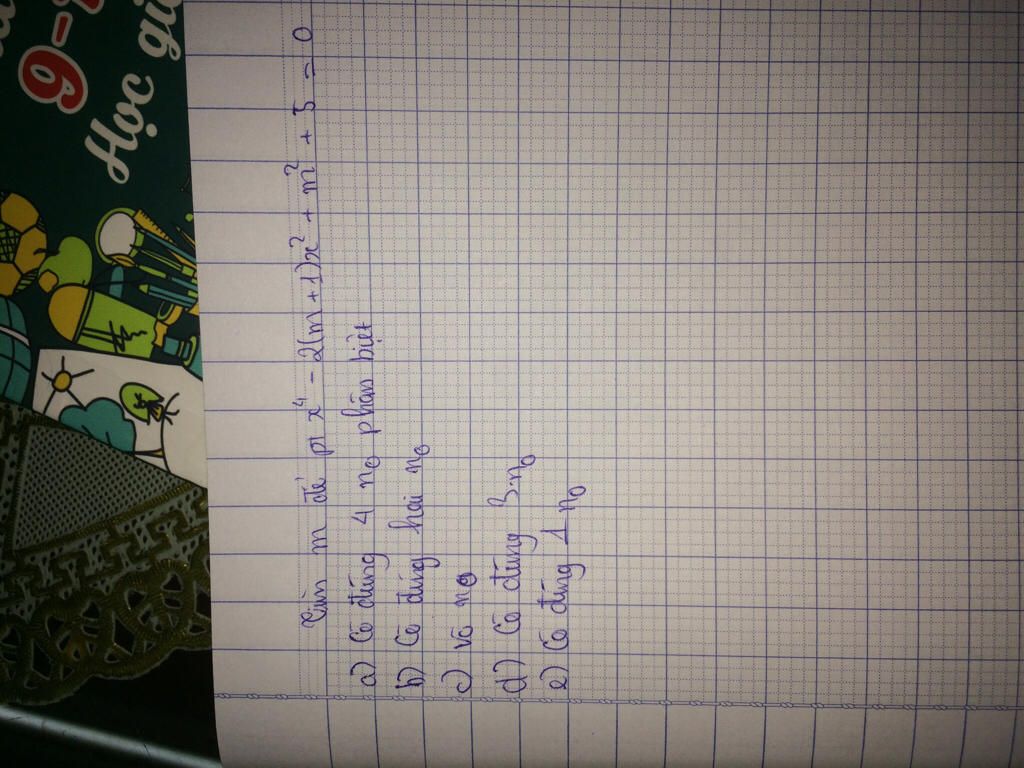 9-
Học gi
Tìm m để pt x⁴ - 2(m + 1)x² + m² + 3 = 0
a) Có đúng 4 n₀ phân biệt
b) Có đúng hai n₀
c) Vô n₀
d) Có đúng 3 n₀
e) Có đúng 1 n₀